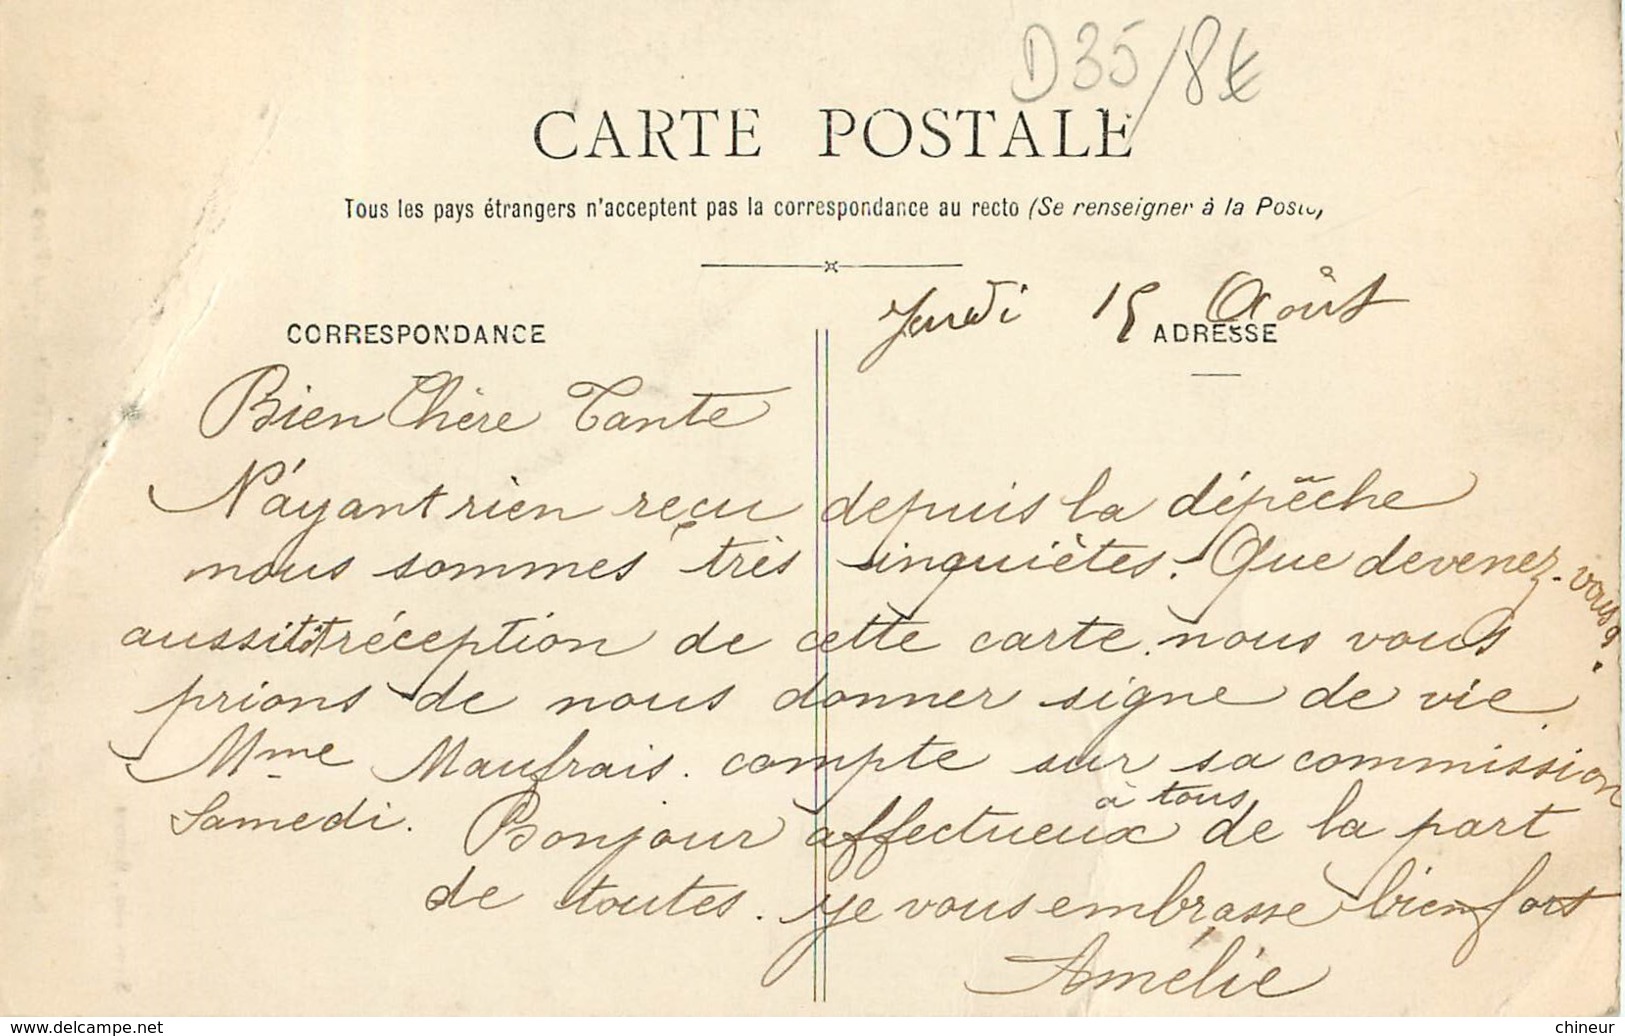 D35/8€
CARTE POSTALE
Tous les pays étrangers n'acceptent pas la correspondance au recto (Se renseigner à la Poste)
Jeudi 15 Août
CORRESPONDANCE
ADRESSE
Bien Chère Tante
N'ayant rien reçu depuis la dépêche
nous sommes très inquiètes. Que devenez-vous?
aussitôt réception de cette carte nous vous
prions de nous donner signe de vie.
Mme Maufrais. compte sur sa commission
Samedi. Bonjour affectueux à tous de la part
de toutes. je vous embrasse bien fort
Amélie
www.delcampe.net
chineur